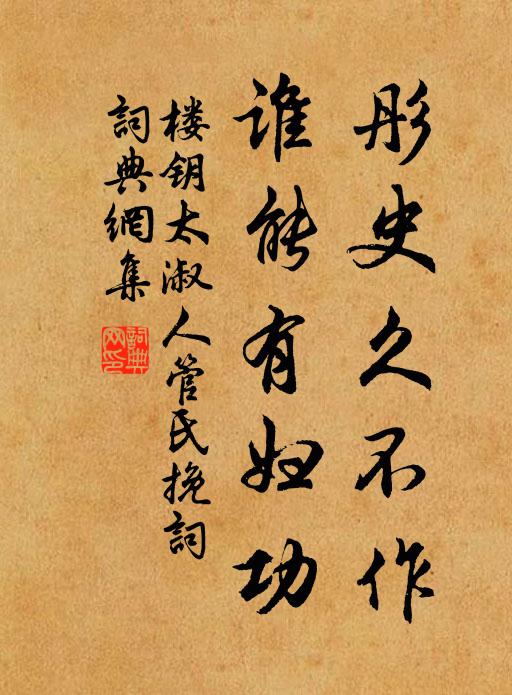 彤史久不作
谁能有妇功
楼钥太淑人管氏挽詞
詞典網集
詞典网印